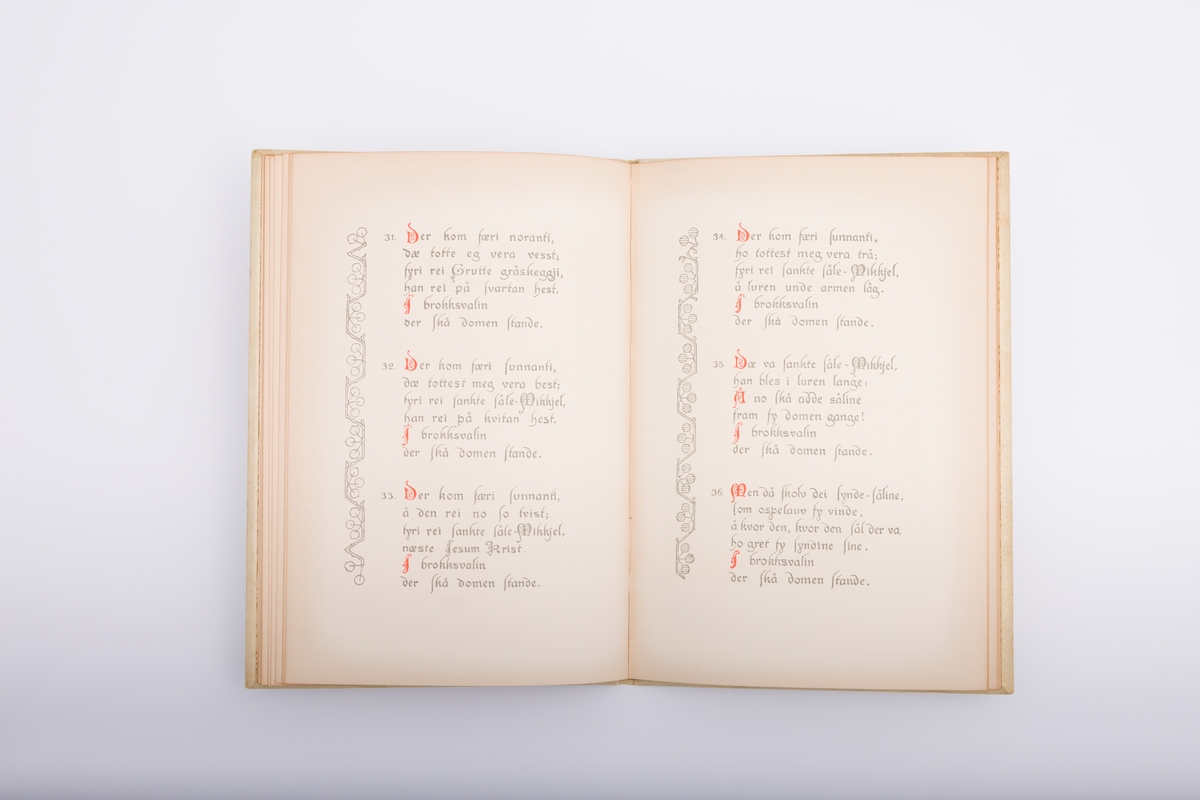 31. Der kom færi noranti,
dæ totte eg vera vesst;
fyri rei Grutte gråskeggji,
han rei på svartan hest.
I brokksvalin
der skå domen stande.
32. Der kom færi sunnanti,
dæ tottest meg vera best;
fyri rei sankte såle-Mikkjel,
han rei på kvitan hest.
I brokksvalin
der skå domen stande.
33. Der kom færi sunnanti,
å den rei no so tvist;
fyri rei sankte såle-Mikkjel,
næste Jesum Krist.
I brokksvalin
der skå domen stande.
34. Der kom færi sunnanti,
ho tottest meg vera trå;
fyri rei sankte såle-Mikkjel,
å luren unde armen låg.
I brokksvalin
der skå domen stande.
35 Dæ va sankte såle-Mikkjel,
han bles i luren lange:
Å no skå adde såline
fram fy domen gange!
I brokksvalin
der skå domen stande.
36. Men då skolv dei synde-såline,
som ospelauv fy vinde,
å kvor den, kvor den sål der va,
ho gret fy syndine sine.
I brokksvalin
der skå domen stande.